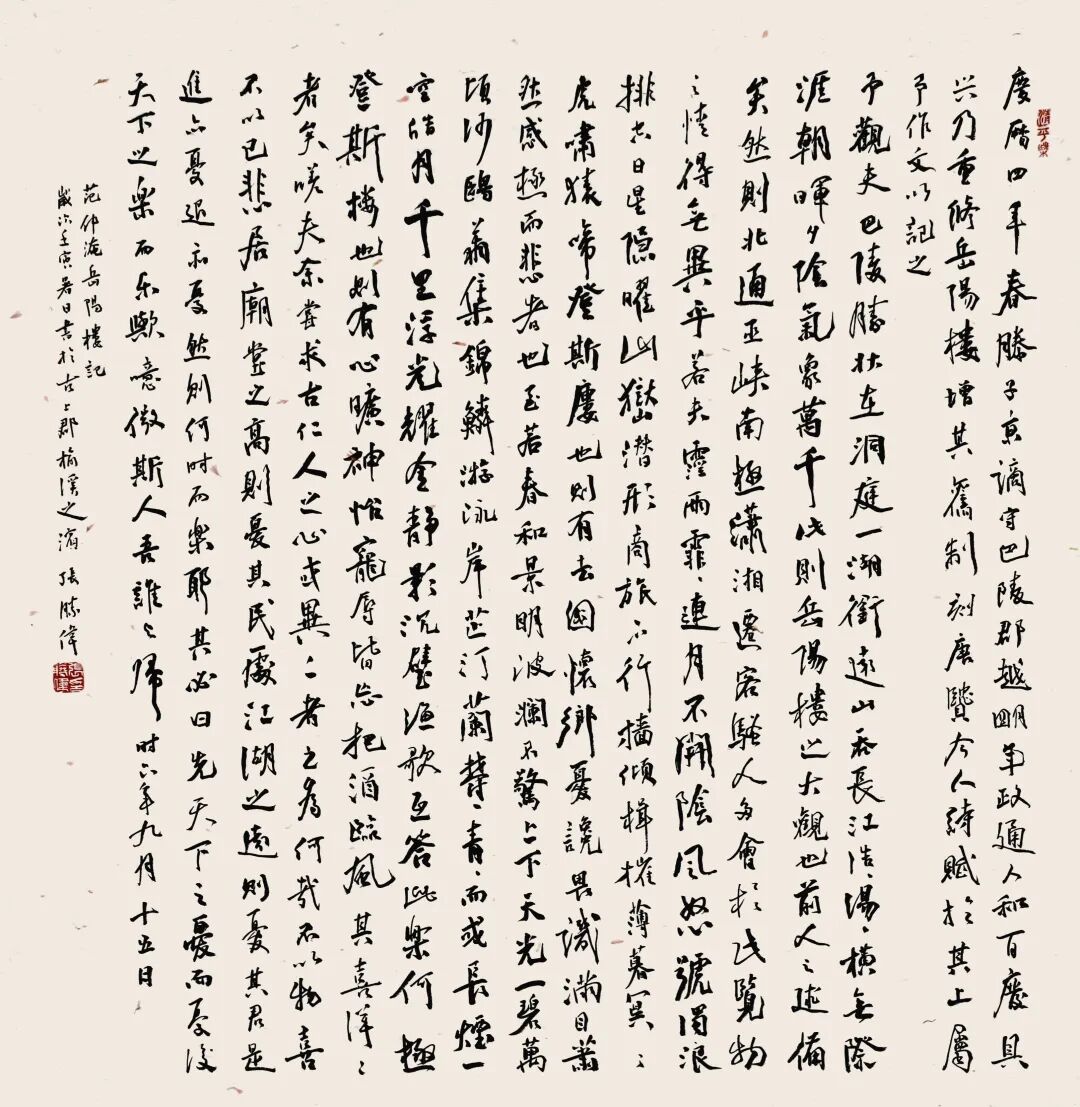 慶曆四年春滕子京謫守巴陵郡越明年政通人和百廢具
兴乃重修岳陽樓增其舊制刻唐賢今人詩賦於其上屬
予作文以記之
予觀夫巴陵勝狀在洞庭一湖銜遠山吞長江浩〻湯〻橫無際
涯朝暉夕陰氣象萬千此則岳陽樓之大觀也前人之述備
矣然則北通巫峽南極瀟湘遷客騷人多會於此覽物
之情得無異乎若夫霪雨霏〻連月不開陰風怒號濁浪
排空日星隱曜山嶽潛形商旅不行檣傾楫摧薄暮冥〻
虎嘯猿啼登斯樓也則有去國懷鄉憂讒畏譏滿目蕭
然感極而悲者也至若春和景明波瀾不驚上下天光一碧萬
頃沙鷗翔集錦鱗游泳岸芷汀蘭鬱〻青〻而或長煙一
空皓月千里浮光耀金靜影沉璧漁歌互答此樂何極
登斯樓也則有心曠神怡寵辱皆忘把酒臨風其喜洋〻
者矣嗟夫余嘗求古仁人之心或異二者之為何哉不以物喜
不以己悲居廟堂之高則憂其民處江湖之遠則憂其君是
進亦憂退亦憂然則何时而樂耶其必曰先天下之憂而憂後
天下之樂而乐歟噫微斯人吾誰與歸时六年九月十五日
范仲淹岳陽樓記
歲次壬寅暑日書於古上郡榆溪之濱張勝偉